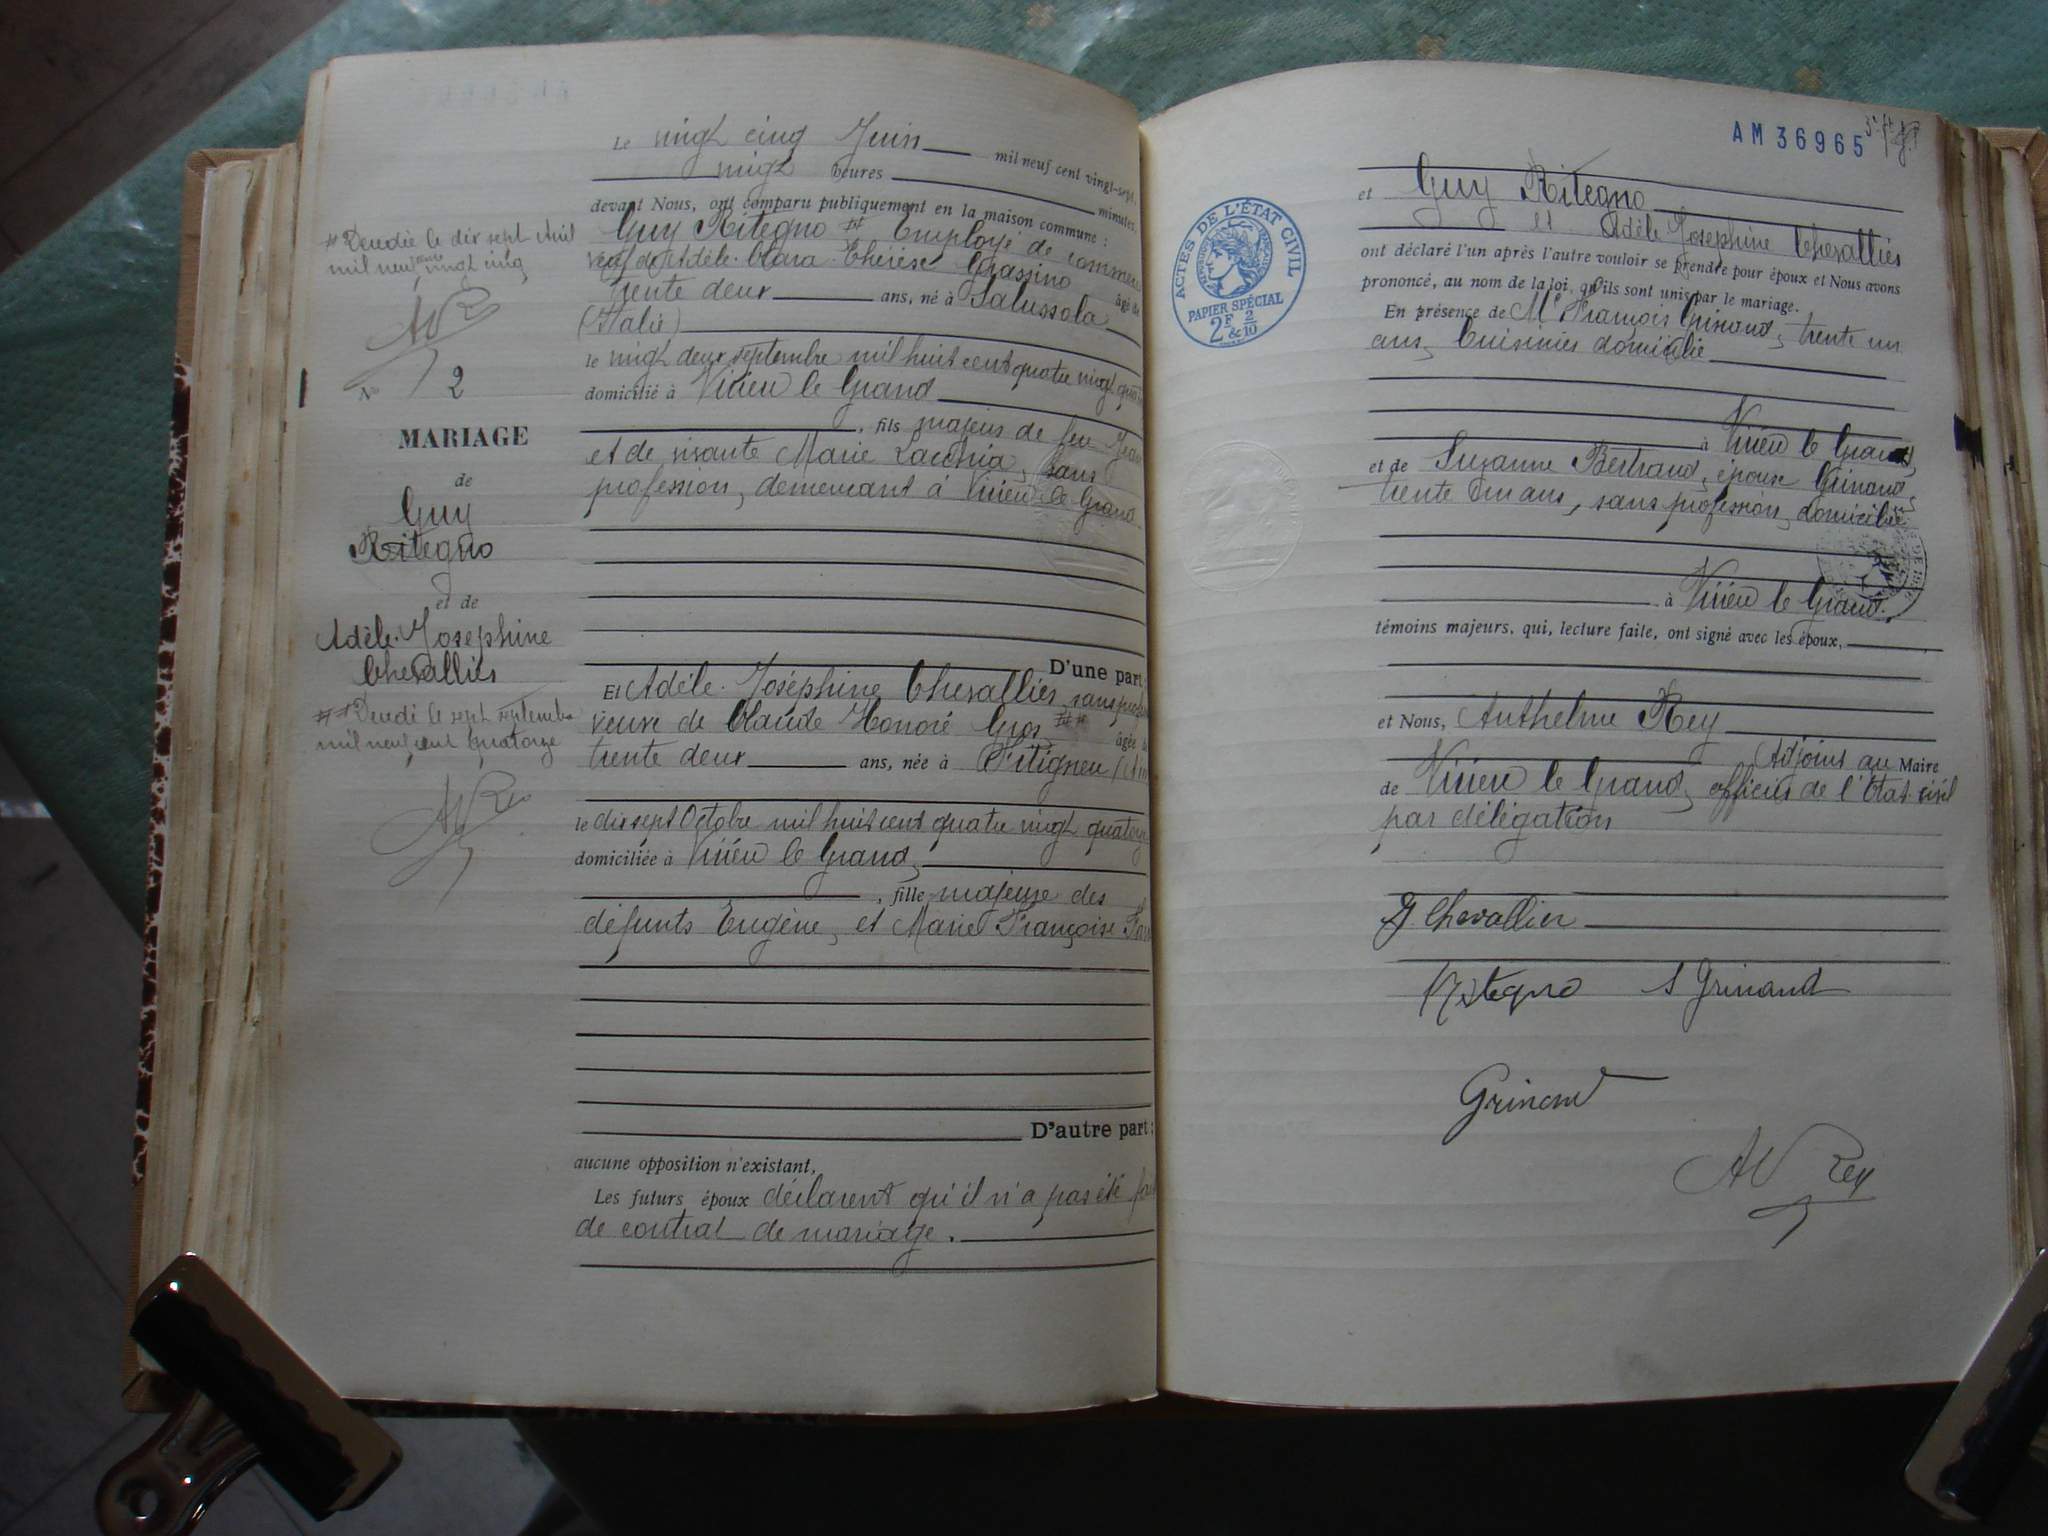 Le vingt cinq Juin mil neuf cent vingt-sept,
vingt heures minutes,
devant Nous, ont comparu publiquement en la maison commune :
Guy Ritegno # Employé de commerce
veuf de Adèle Clara Thérèse Grassino âgé de
trente deux ans, né à Salussola
(Italie)
le vingt deux septembre mil huit cent quatre vingt
domicilié à Virieu le Grand
, fils majeur de feu Jean
et de vivante Marie Lacchia, sans
profession, demeurant à Virieu le Grand
D'une part
Et Adèle Joséphine Chevallier, sans
veuve de Claude Honoré Gros ## âgée de
trente deux ans, née à Pitigneu (Ain
le dix sept Octobre mil huit cent quatre vingt quatorze
domiciliée à Virieu le Grand,
, fille majeure des
défunts Eugène, et Marie Françoise
D'autre part :
aucune opposition n'existant,
Les futurs époux déclarent qu'il n'a pas été
de contrat de mariage.
# Décédée le dix sept Avril
mil neuf cent vingt cinq
N° 2
MARIAGE
de
Guy
Ritegno
et de
Adèle Josephine
Chevallier
## Décédé le sept septembre
mil neuf cent quatorze
AM 36965
ACTES DE L'ÉTAT CIVIL
PAPIER SPÉCIAL
2F & 2/10
et Guy Ritegno
et Adèle Josephine Chevallier
ont déclaré l'un après l'autre vouloir se prendre pour époux et Nous avons
prononcé, au nom de la loi, qu'ils sont unis par le mariage.
En présence de Mr François Grinand, trente un
ans, Cuisinier domicilié
à Virieu le Grand,
et de Suzanne Bertrand, épouse Grinand,
trente un ans, sans profession, domiciliée
à Virieu le Grand.
témoins majeurs, qui, lecture faite, ont signé avec les époux,
et Nous, Anthelme Rey
Adjoint au Maire
de Virieu le Grand, officier de l'Etat civil
par délégation
J Chevallier
Ritegno S Grinand
Grinand
A Rey